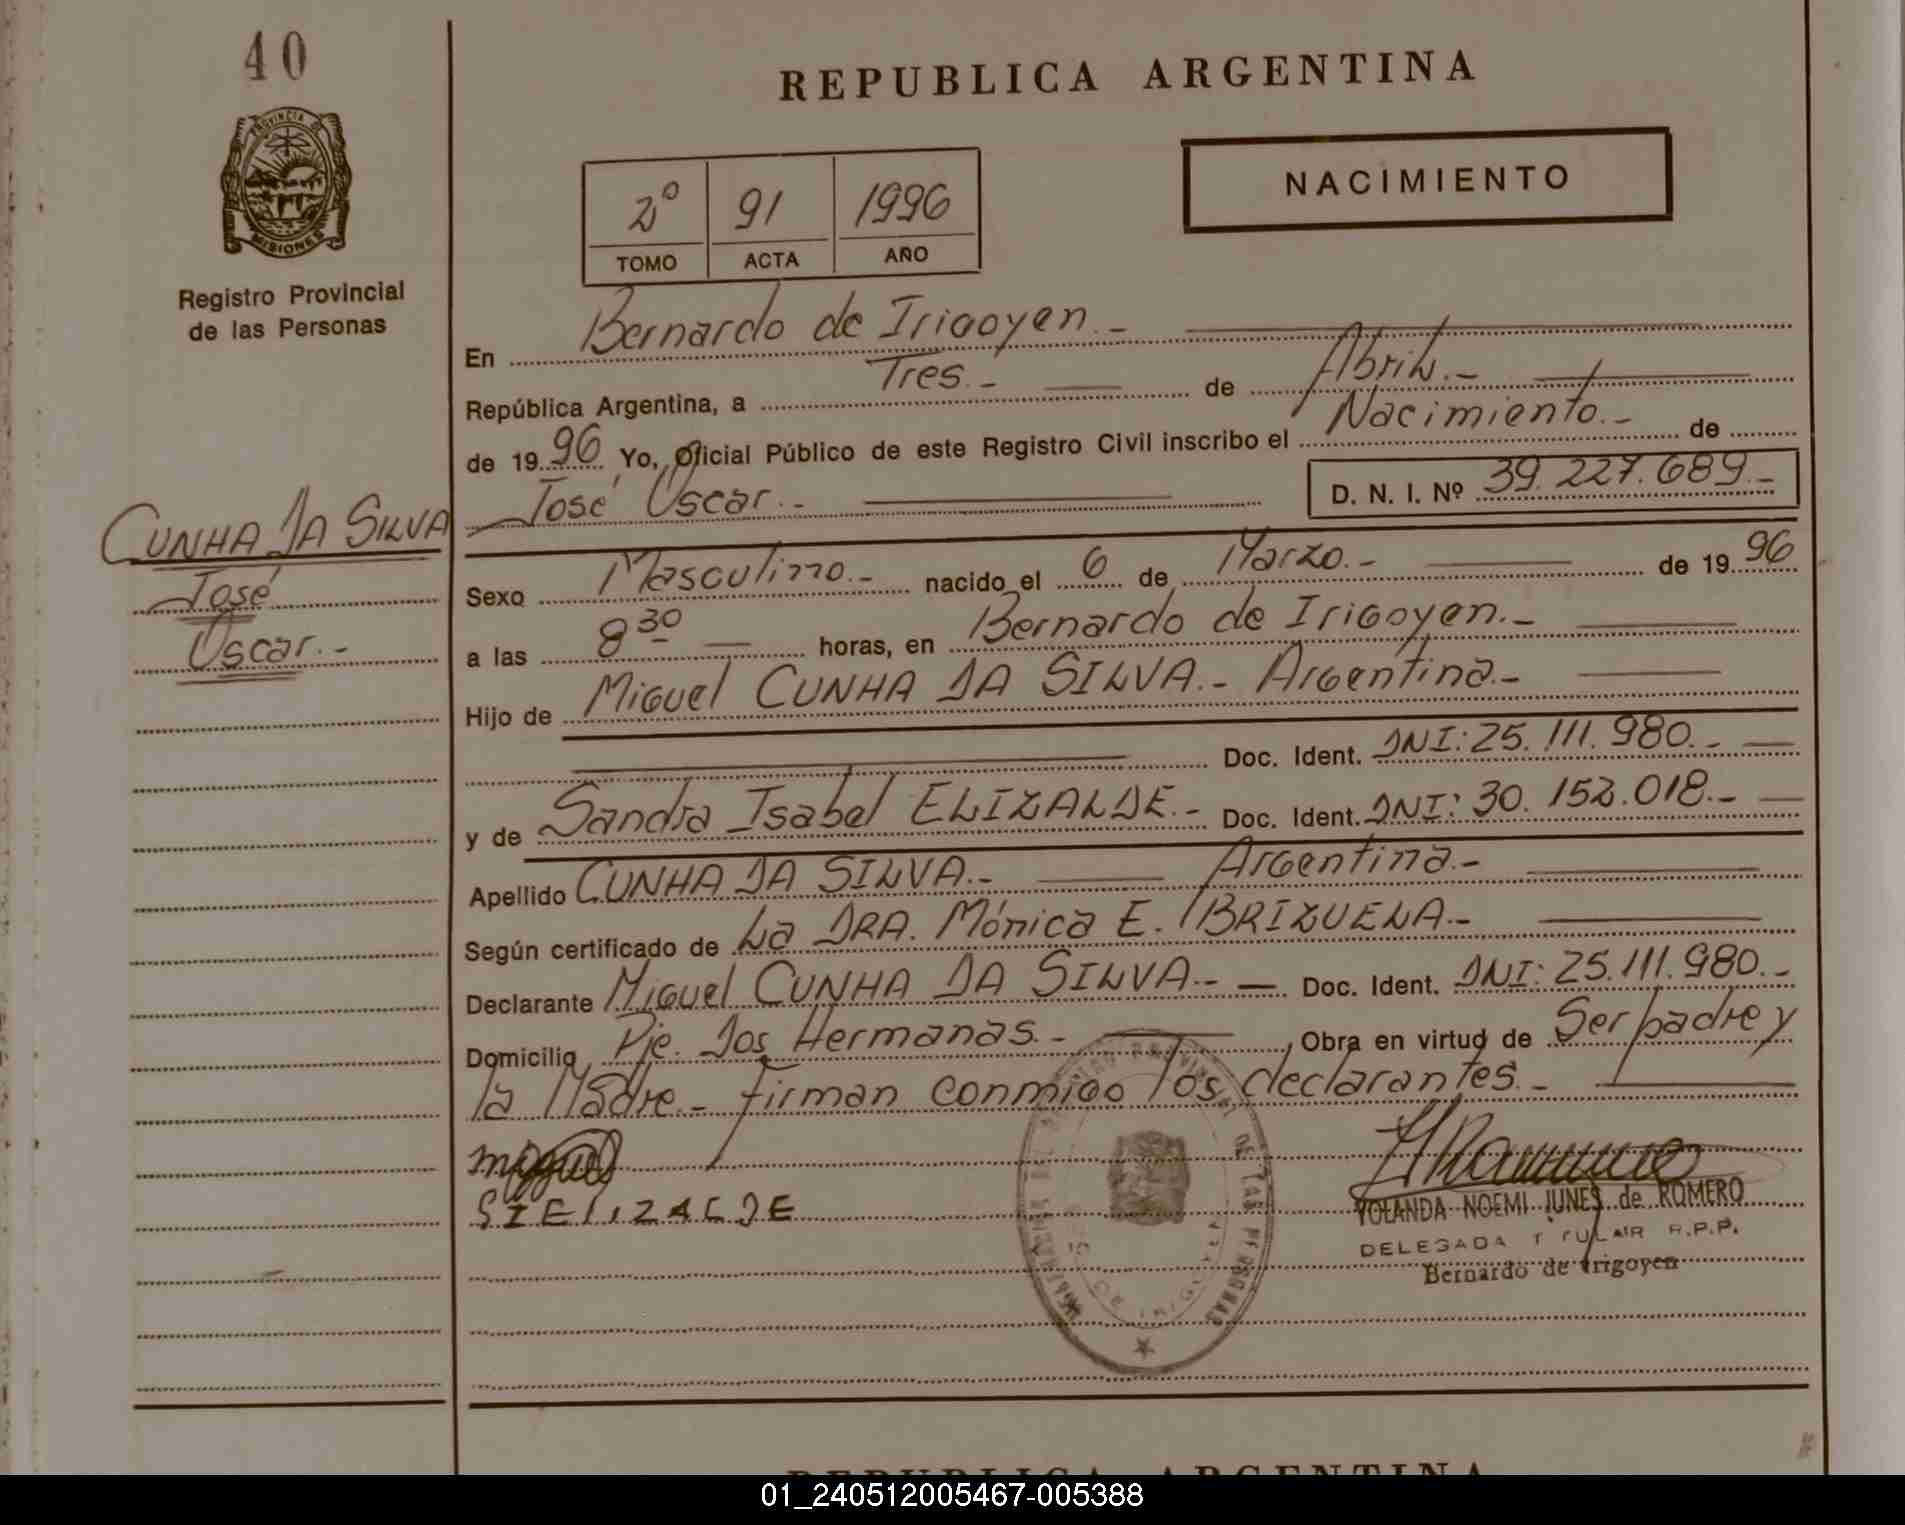 40
PROVINCIA DE
MISIONES
Registro Provincial
de las Personas
REPUBLICA ARGENTINA
NACIMIENTO
2º 91 1996
TOMO ACTA AÑO
En Bernardo de Irigoyen.-
República Argentina, a Tres.- de Abril.-
de 1996 Yo, Oficial Público de este Registro Civil inscribo el Nacimiento.- de
José Oscar.- D. N. I. Nº 39.227.689.-
CUNHA DA SILVA
José
Oscar.-
Sexo Masculino.- nacido el 6 de Marzo.- de 1996
a las 8 30 horas, en Bernardo de Irigoyen.-
Hijo de Miguel CUNHA DA SILVA.- Argentina.-
Doc. Ident. DNI: 25.111.980.-
y de Sandra Isabel ELIZALDE.- Doc. Ident. DNI: 30.152.018.-
Apellido CUNHA DA SILVA.- Argentina.-
Según certificado de La DRA. Mónica E. BRIZUELA.-
Declarante Miguel CUNHA DA SILVA.- Doc. Ident. DNI: 25.111.980.-
Domicilio Pje. Dos Hermanas.- Obra en virtud de Ser padre y
la Madre.- firman conmigo los declarantes.-
Miguel
SIELIZALDE
YOLANDA NOEMI JUNES de ROMERO
DELEGADA TITULAR R.P.P.
Bernardo de Irigoyen
DE LAS PERSONAS
REPUBLICA ARGENTINA
01_240512005467-005388